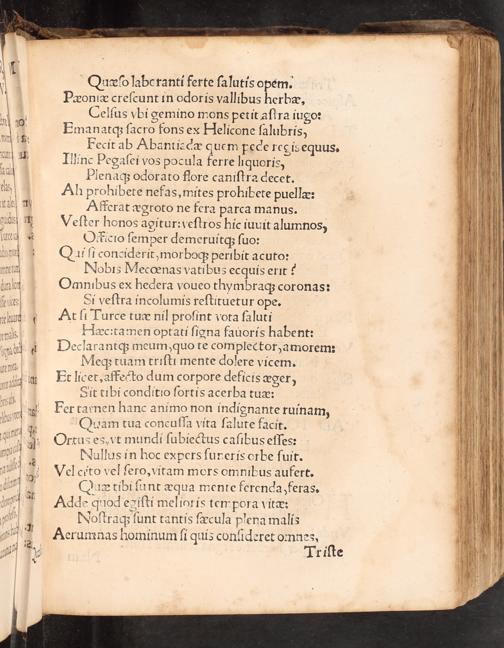 Quæso laboranti ferte salutis opem.
Pæoniæ crescunt in odoris vallibus herbæ,
Celsus vbi gemino mons petit astra iugo:
Emanatq; sacro fons ex Helicone salubris,
Fecit ab Abantiadæ quem pede regis equus.
Illinc Pegasei vos pocula ferre liquoris,
Plenaq; odorato flore canistra decet.
Ah prohibete nefas, mites prohibete puellæ:
Afferat ægroto ne fera parca manus.
Vester honos agitur: vestros hic iuuit alumnos,
Officio semper demeruitq; suo:
Qui si conciderit, morboq; peribit acuto:
Nobis Mecœnas vatibus ecquis erit?
Omnibus ex hedera voueo thymbraq; coronas:
Si vestra incolumis restituetur ope.
At si Turce tuæ nil prosint vota saluti
Hæc: tamen optati signa fauoris habent:
Declarantq; meum, quo te complector, amorem:
Meq; tuam tristi mente dolere vicem.
Et licet, affecto dum corpore deficis æger,
Sit tibi conditio sortis acerba tuæ:
Fer tamen hanc animo non indignante ruinam,
Quam tua concussa vita salute facit.
Ortus es, vt mundi subiectus casibus esses:
Nullus in hoc expers funeris orbe fuit.
Vel cito vel sero, vitam mors omnibus aufert.
Quæ tibi sunt æqua mente ferenda, feras.
Adde quod egisti melioris tempora vitæ:
Nostraq; sunt tantis sæcula plena malis
Aerumnas hominum si quis consideret omnes,
Triste